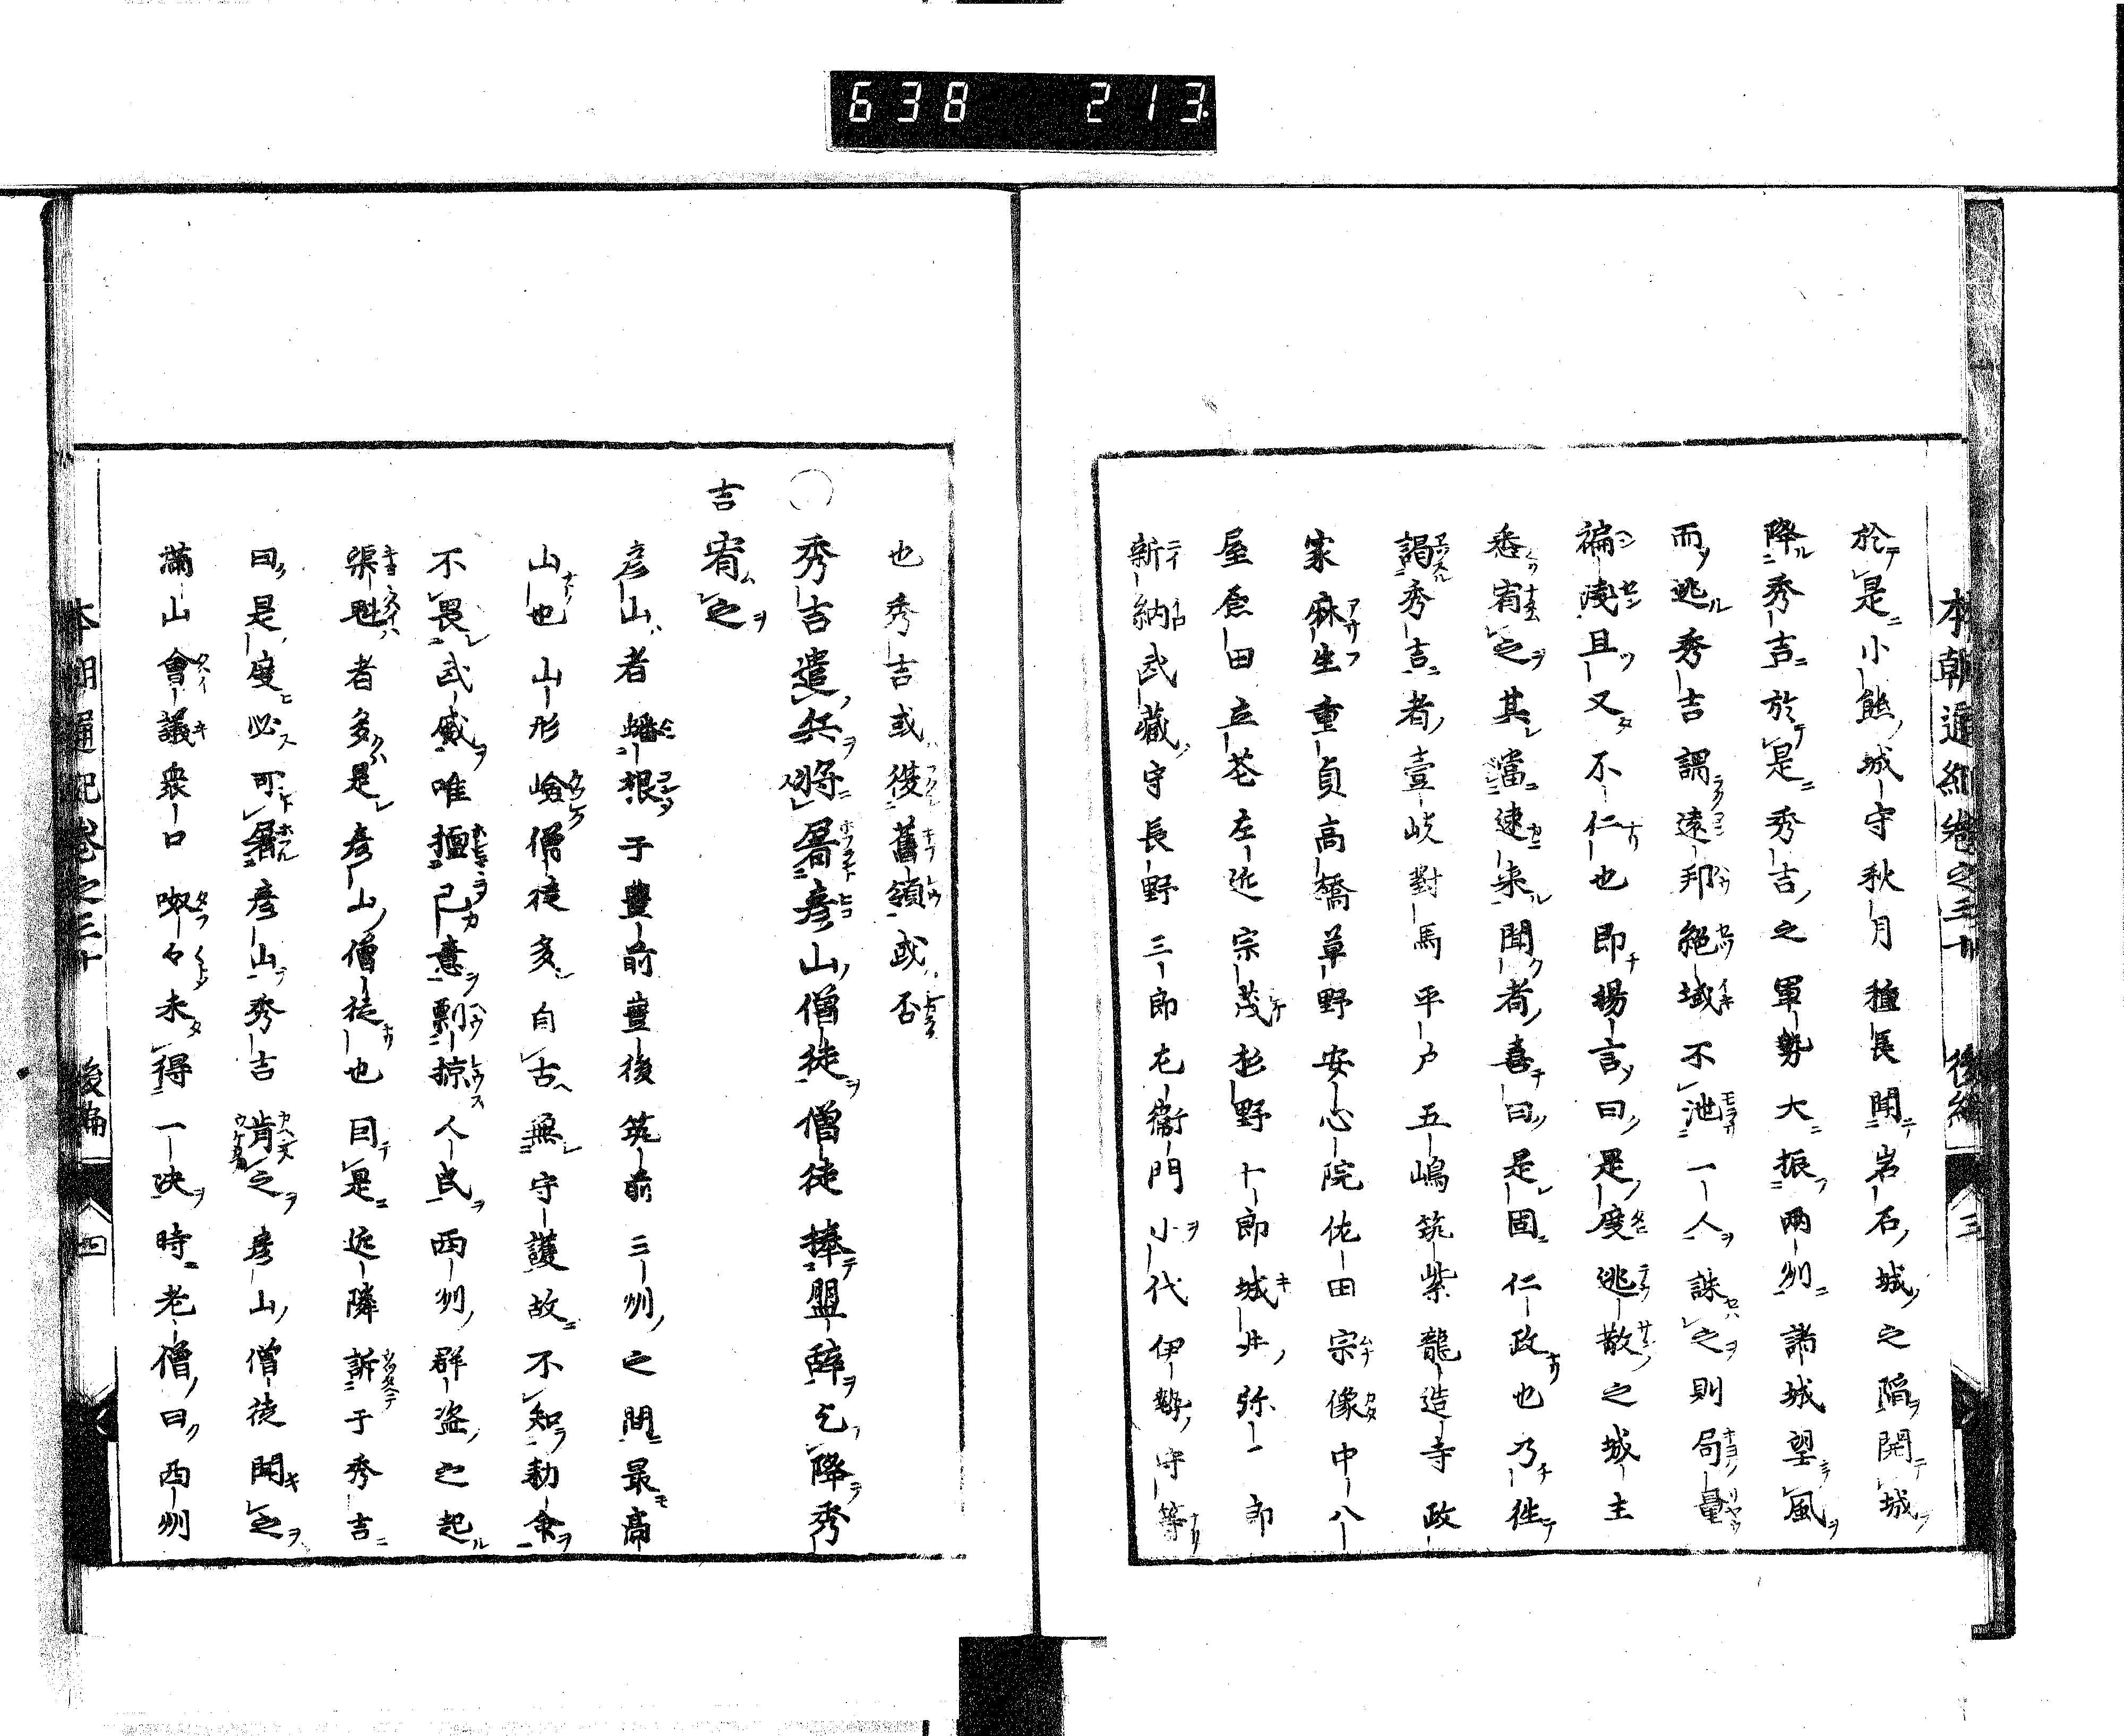 638 213
本朝通紀卷之三十 後編 三
於是小熊城守秋月種長聞岩石城之陥開城
降秀吉於是秀吉之軍勢大振兩州諸城望風
而逃秀吉謂遠邦絕域不洩一人誅之則局量
褊淺且又不仁也即揚言曰是度逃散之城主
悉宥之其當速来聞者喜曰是固仁政也乃徃
謁秀吉者壹岐對馬平戸五嶋筑紫龍造寺政
家麻生重貞高橋草野安心院佐田宗像中八
屋倉田立花左近宗茂杉野十郎城井弥一郎
新納武藏守長野三郎左衞門小代伊勢守等
也秀吉或復舊領或否
○秀吉遣兵將屠彥山僧徒僧徒捧盟辞乞降秀
吉宥之
彥山者蟠根于豐前豐後筑前三州之間最高
山也山形嶮僧徒多自古無守護故不知勅命
不畏武威唯擅己意剽掠人民西州群盗之起
渠魁者多是彥山僧徒也因是近隣訴于秀吉
曰是度必可屠彥山秀吉肯之彥山僧徒聞之
滿山會議衆口呶々未得一决時老僧曰西州
本朝通紀卷之三十 後編 四